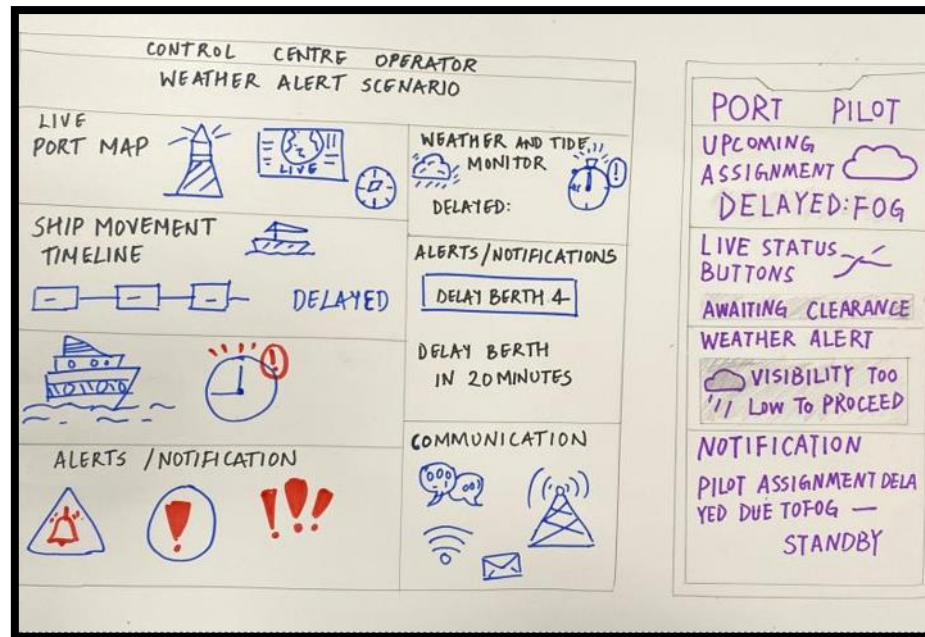 CONTROL CENTRE OPERATOR
WEATHER ALERT SCENARIO
LIVE
PORT MAP
LIVE
SHIP MOVEMENT
TIMELINE
DELAYED
ALERTS / NOTIFICATION
WEATHER AND TIDE
MONITOR
DELAYED:
ALERTS/NOTIFICATIONS
DELAY BERTH 4
DELAY BERTH
IN 20 MINUTES
COMMUNICATION
PORT PILOT
UPCOMING
ASSIGNMENT
DELAYED: FOG
LIVE STATUS
BUTTONS
AWAITING CLEARANCE
WEATHER ALERT
VISIBILITY TOO
LOW TO PROCEED
NOTIFICATION
PILOT ASSIGNMENT DELA
YED DUE TO FOG —
STANDBY